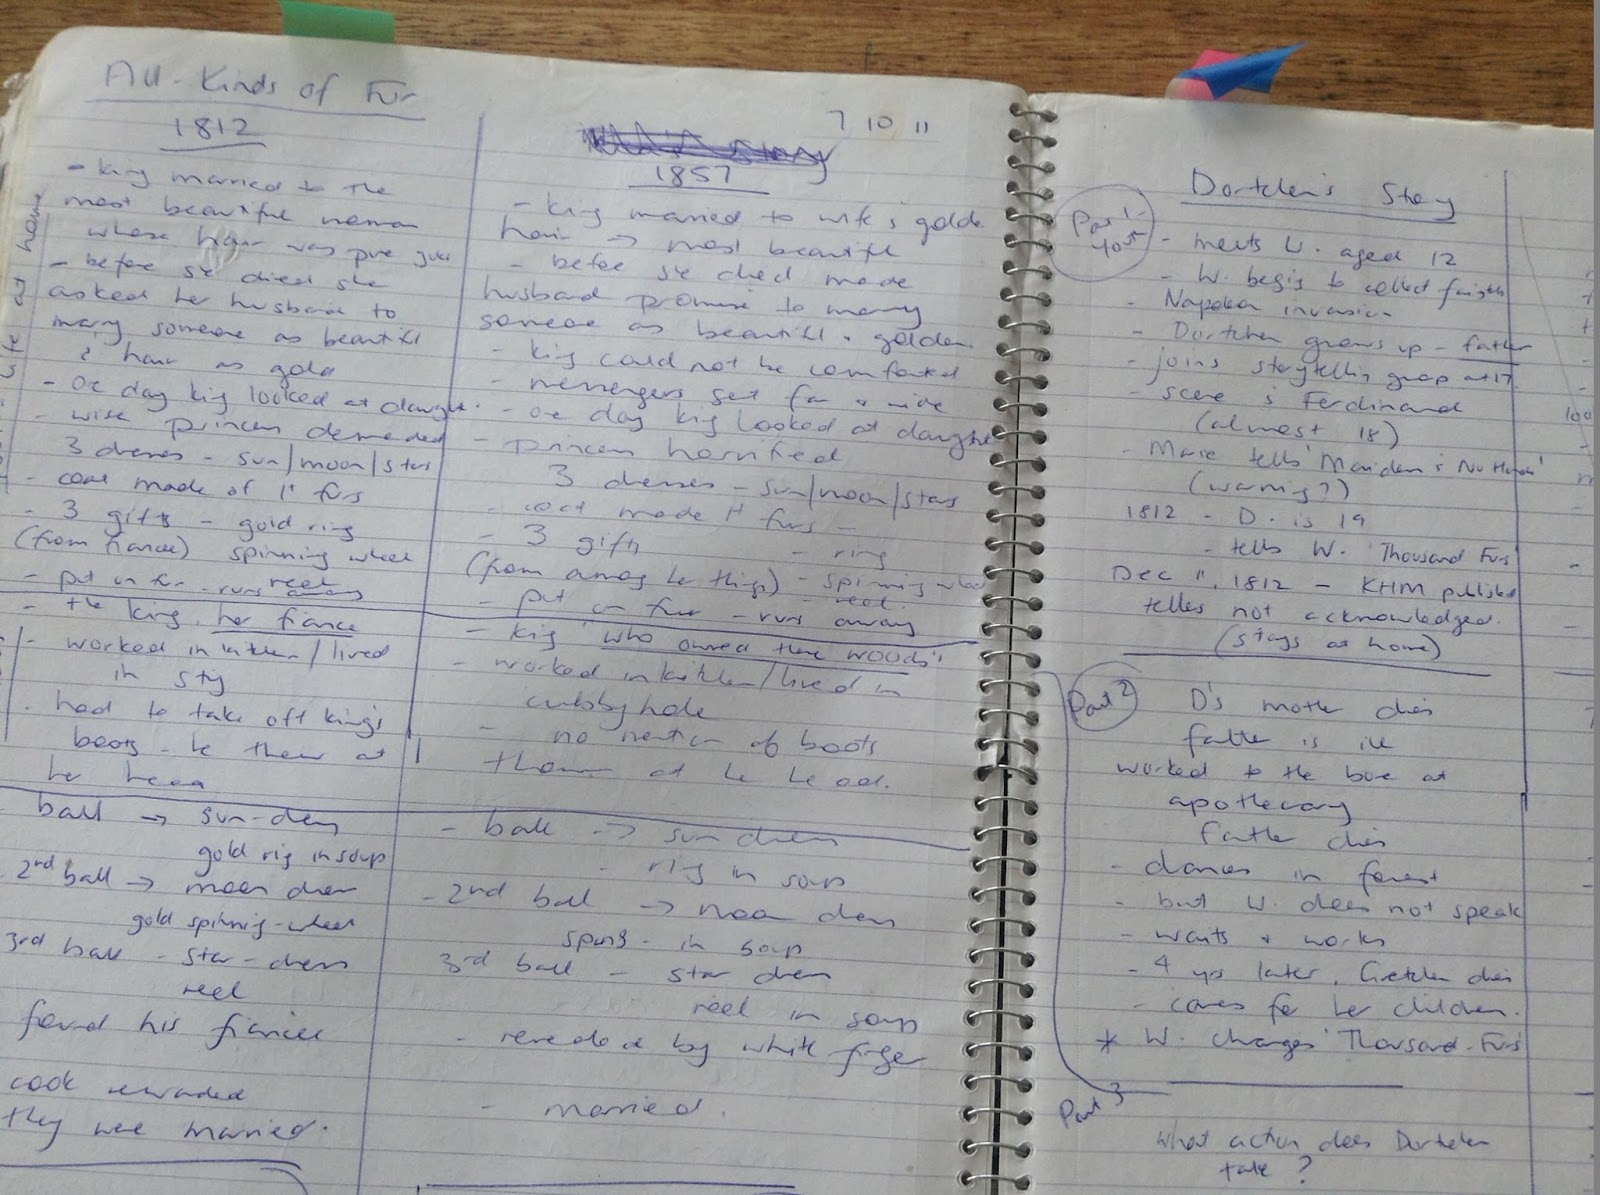 All-Kinds of Fur
1812
- king married to the
most beautiful woman
whose hair was pure gold
- before she died she
asked her husband to
marry someone as beautiful
& hair as gold
- one day king looked at daught
- wise princess demanded
3 dresses - sun/moon/stars
- coat made of furs
- 3 gifts - gold ring
(from fiance) spinning wheel
reel
- put on fur - runs away
- the king, her fiance
- worked in kitchen/lived
in sty
- had to take off king's
boots - he threw at
her head
ball → sun-dress
gold ring in soup
2nd ball → moon dress
gold spinning-wheel
3rd ball - star-dress
reel
found his fiancee
cook rewarded
they were married.
7 10 11
1857
- king married to wife's golde
hair → most beautiful
- before she died made
husband promise to marry
someone as beautiful + golden
- king could not be comforted
- messengers sent far & wide
- one day king looked at daughte
- princess horrified
3 dresses - sun/moon/stars
- coat made furs -
- 3 gifts - ring
(from among her things) - spinning wheel
- reel.
- put on fur - runs away
- king "who owned these woods"
- worked in kitchen/lived in
cubbyhole
- no mention of boots
thrown at her head.
- ball → sun dress
- ring in soup
- 2nd ball → moon dress
in soup
3rd ball - star dress
reel in soup
- revealed by white finger
- married.
Dortchen's Story
Part 1 -
- meets W. aged 12
- W. begins to collect
- Napoleon invasion
- Dortchen grows up - father
- joins storytelling group at 17
- scene Ferdinand
(almost 18)
- Marie tells 'Maiden No Hands'
(warning?)
1812 - D. is 19
- tells W. 'Thousand Furs'
Dec 1812 - KHM published
tellers not acknowledged.
(stays at home)
Part 2
D's mother dies
father is ill
worked to the bone at
apothecary
father dies
- dances in forest
- but W. does not speak
- waits & works
- 4 yrs later, Gretchen dies
- cares for her children.
* W. changes 'Thousand-Furs'
Part 3
What action does Dortchen
take?